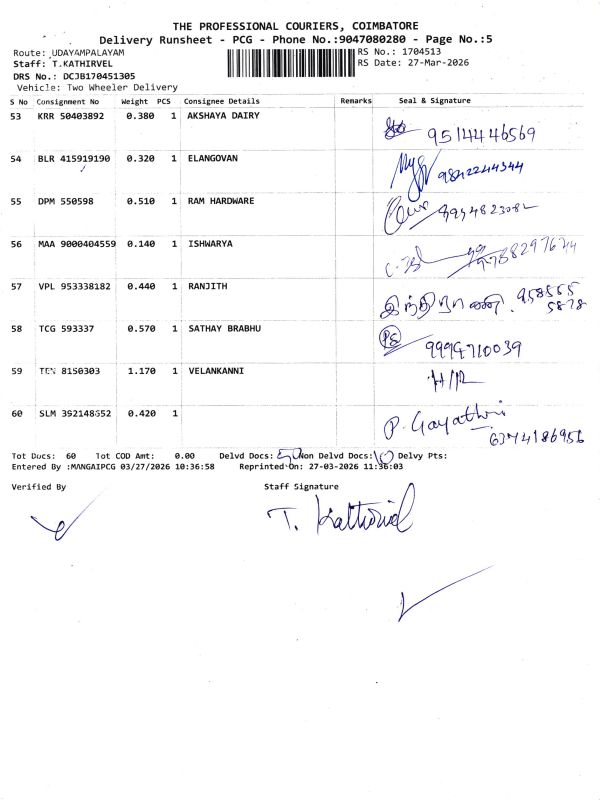 THE PROFESSIONAL COURIERS, COIMBATORE
Delivery Runsheet - PCG - Phone No.:9047080280 - Page No.:5
Route: UDAYAMPALAYAM
RS No.: 1704513
Staff: T.KATHIRVEL
RS Date: 27-Mar-2026
DRS No.: DCJB170451305
Vehicle: Two Wheeler Delivery
S No Consignment No Weight PCS Consignee Details Remarks Seal & Signature
53 KRR 50403892 0.380 1 AKSHAYA DAIRY 9514446569
54 BLR 415919190 0.320 1 ELANGOVAN 9842244344
55 DPM 550598 0.510 1 RAM HARDWARE
56 MAA 9000404559 0.140 1 ISHWARYA
57 VPL 953338182 0.440 1 RANJITH 958565
5878
58 TCG 593337 0.570 1 SATHAY BRABHU PS
9994710039
59 TEN 8150303 1.170 1 VELANKANNI H/R
60 SLM 392148652 0.420 1 P. Gayathri
6374186956
Tot Docs: 60 Tot COD Amt: 0.00 Delvd Docs: 50 Non Delvd Docs: 10 Delvy Pts:
Entered By :MANGAIPCG 03/27/2026 10:36:58 Reprinted On: 27-03-2026 11:36:03
Verified By Staff Signature
T. Kathirvel